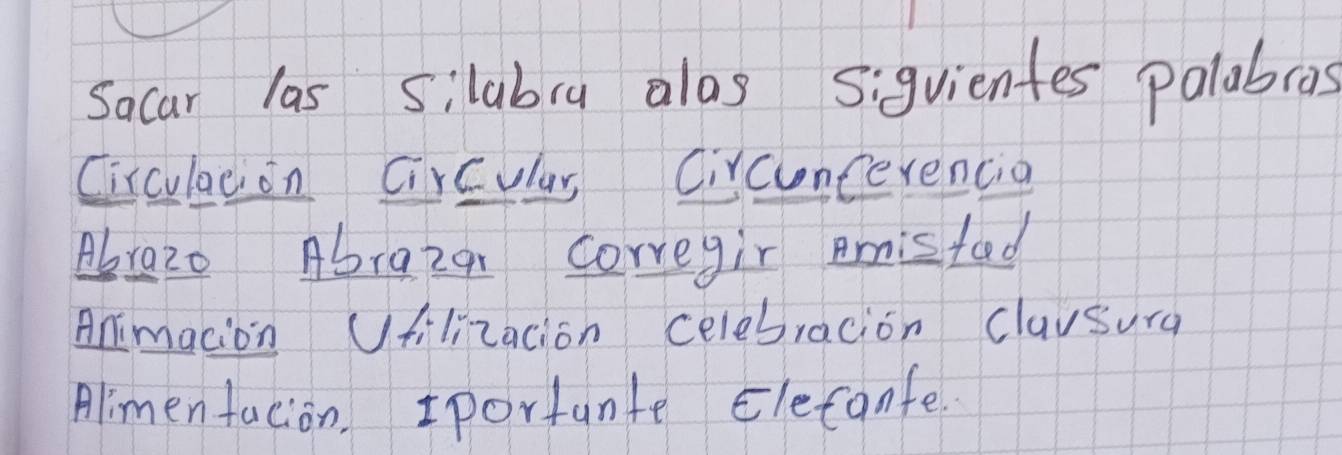 Sacar las silabra alas siguientes palabras
Circulación Circular, Circunferencia
Abrazo Abrazar corregir Amistad
Animación Utilización celebración clausura
Alimentación. Iportante Elefante.